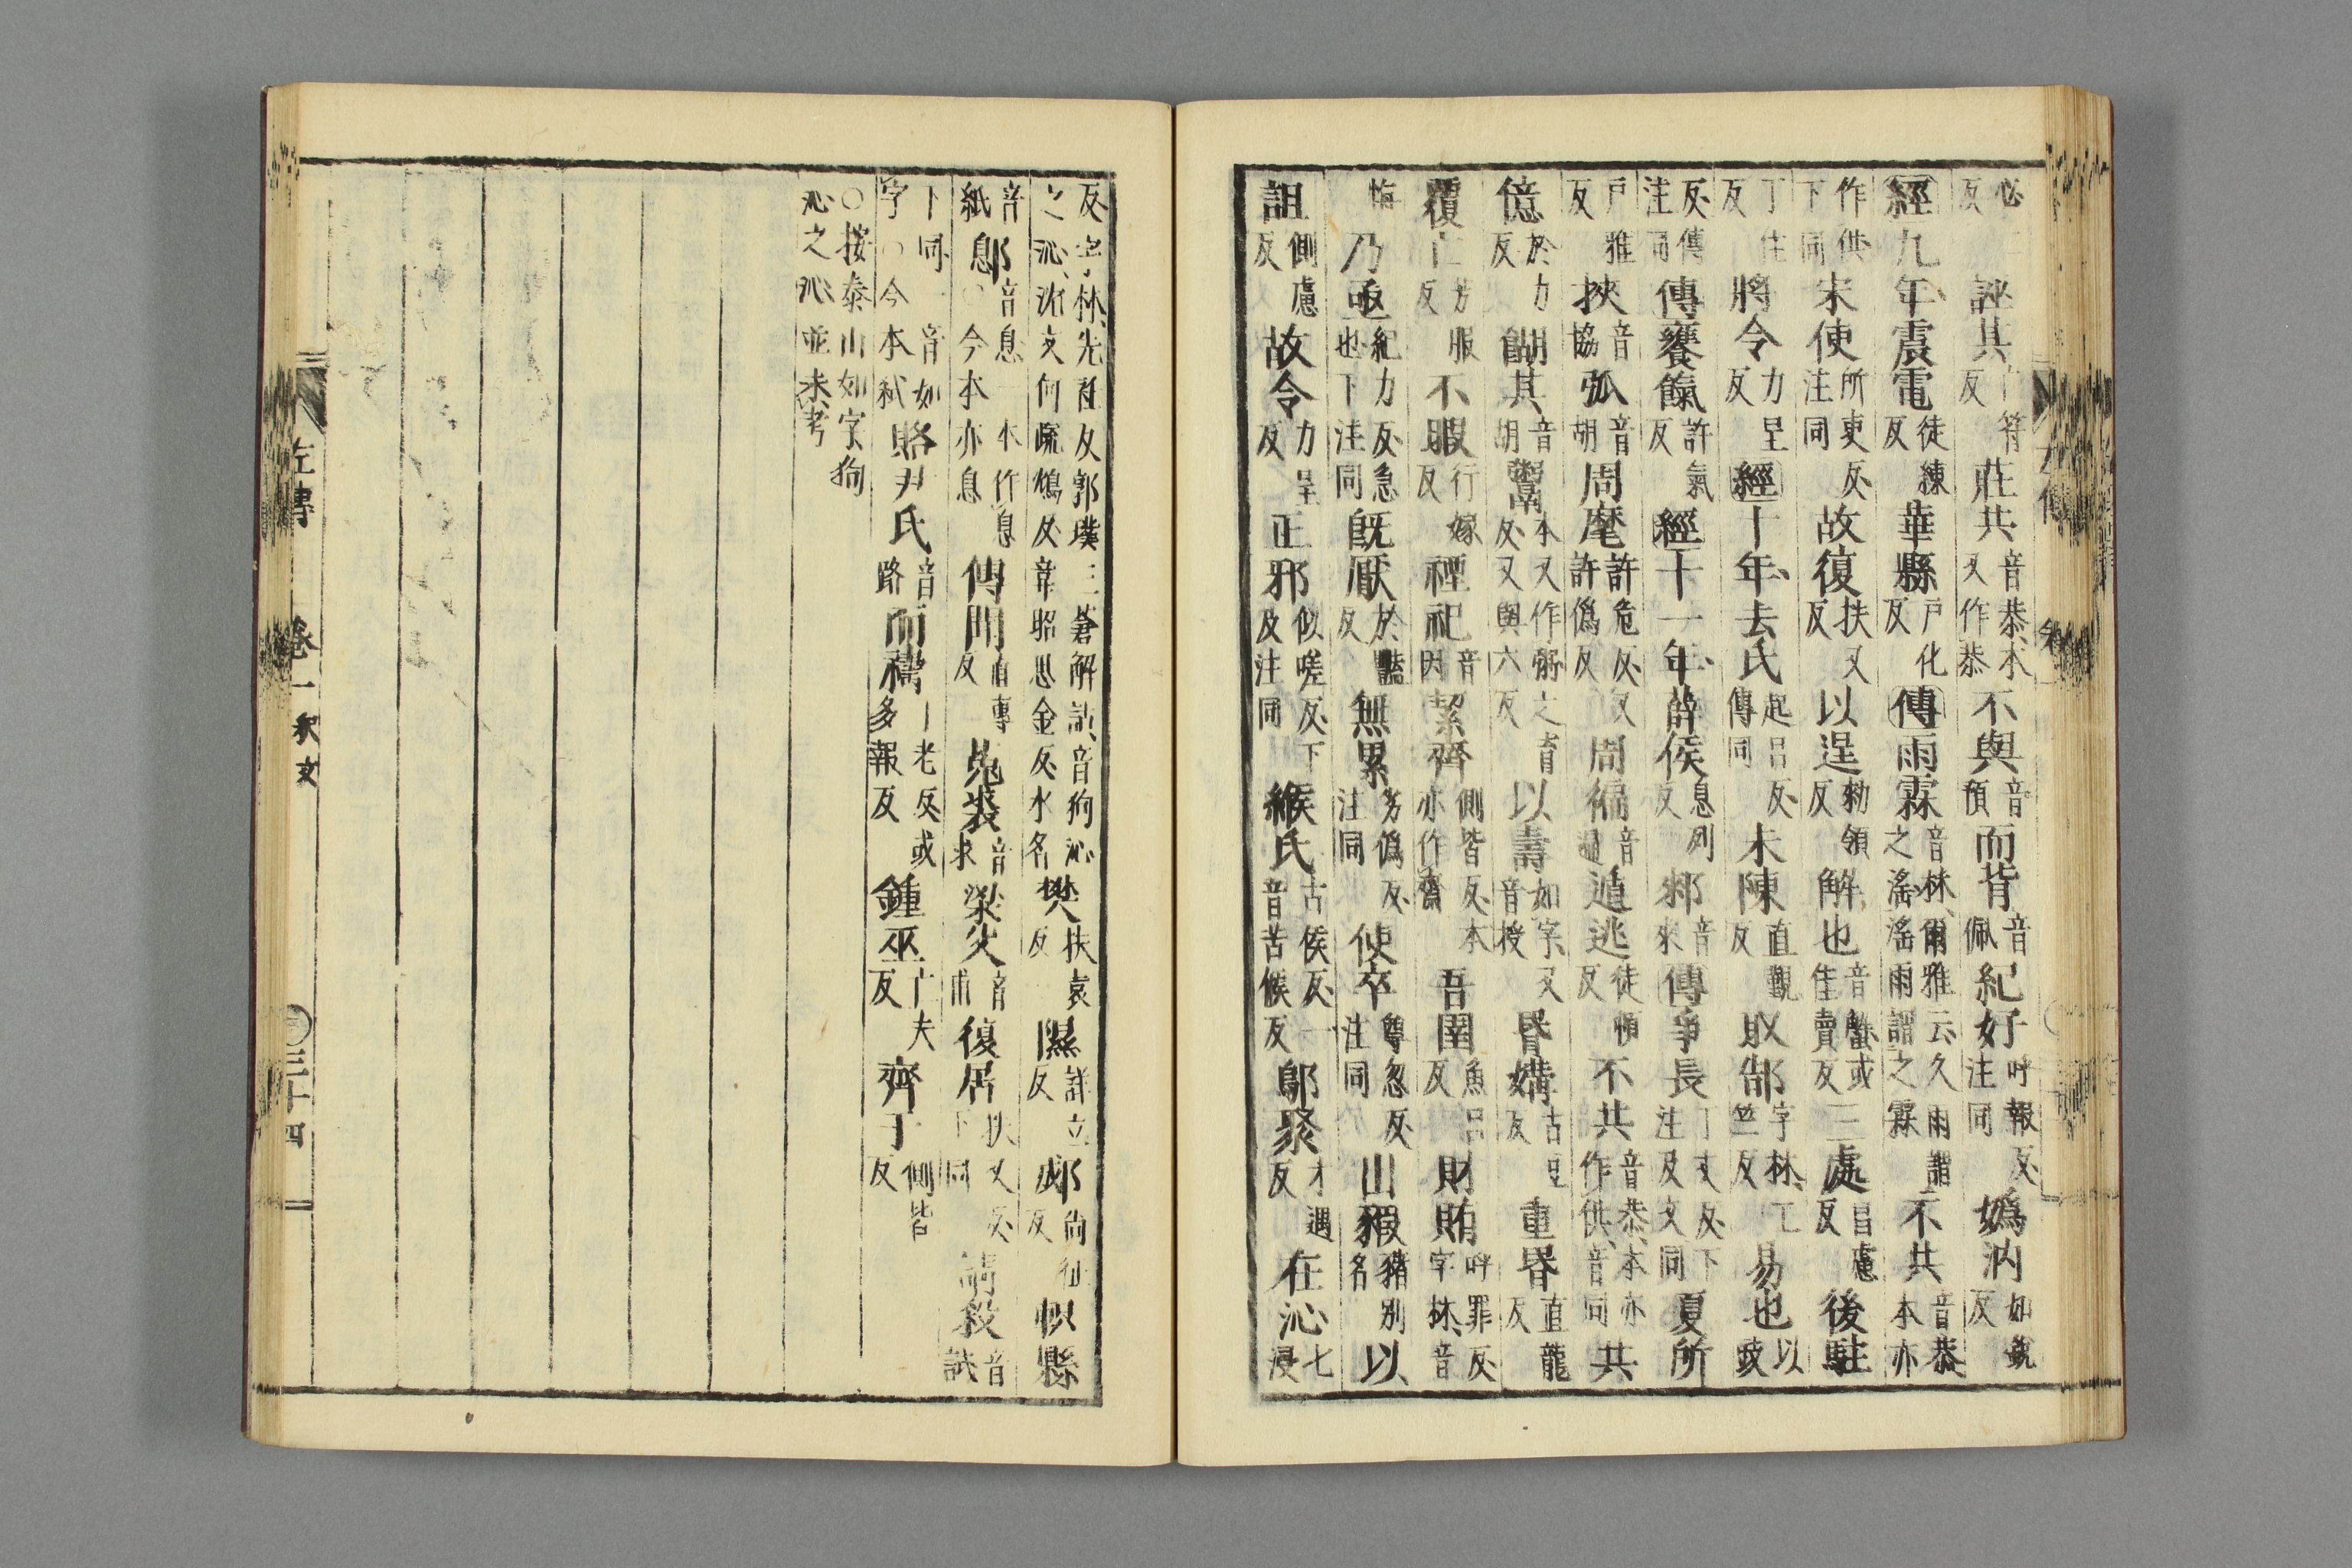 必反誣其亡符反莊共音恭本又作恭不與音預而背音佩紀好呼報反注同嬀汭如銳反
經九年震電徒練反華縣戶化反傳雨霖音林爾雅云久雨謂之滛滛雨謂之霖不共音恭本亦
作供下同宋使所吏反注同故復扶又反以逞勑領反解也音蟹或佳賣反三處昌慮反後駐
丁住反將令力呈反經十年去氏起呂反傳同未陳直覲反取郜字林工竺反易也以豉
反傳注同傳饔餼許氣反經十一年薛侯息列反郲音來傳爭長丁丈反下注及文同夏所
戶雅反挾音協弧音胡周麾許危反又許僞反周徧音遍遁逃徒頓反不共音恭本亦作供音同共
億於力反餬其音胡鬻本又作之育反又與六反以壽如字又音授昬媾古豆反重昬直龍反
覆亡芳服反不暇行嫁反禋祀音因絜齊側皆反本亦作齋吾圉魚呂反財賄呼罪反字林音
悔乃亟紀力反急也下注同旣厭於豔反無累劣僞反注同使卒尊忽反注同出豭豬別名以
詛側慮反故令力呈反正邪似嗟反下及注同緱氏古侯反一音苦候反鄔聚才遇反在沁七浸
反字林先任反郭璞三蒼解詁音狗沁之沁沈文何疏鴆反韋昭思金反水名樊扶袁反隰詳立反郕尚征反帜縣
音紙鄎音息一本作息○今本亦息傳閒直專反菟裘音求梁父音甫復居扶又反下同請弒音試
下同一音如字○今本弒賂尹氏音路而禱丁老反或多報反鍾巫亡夫反齊于側皆反
○按泰山如字狗沁之沁並未考
左傳 卷一釈文 三十四